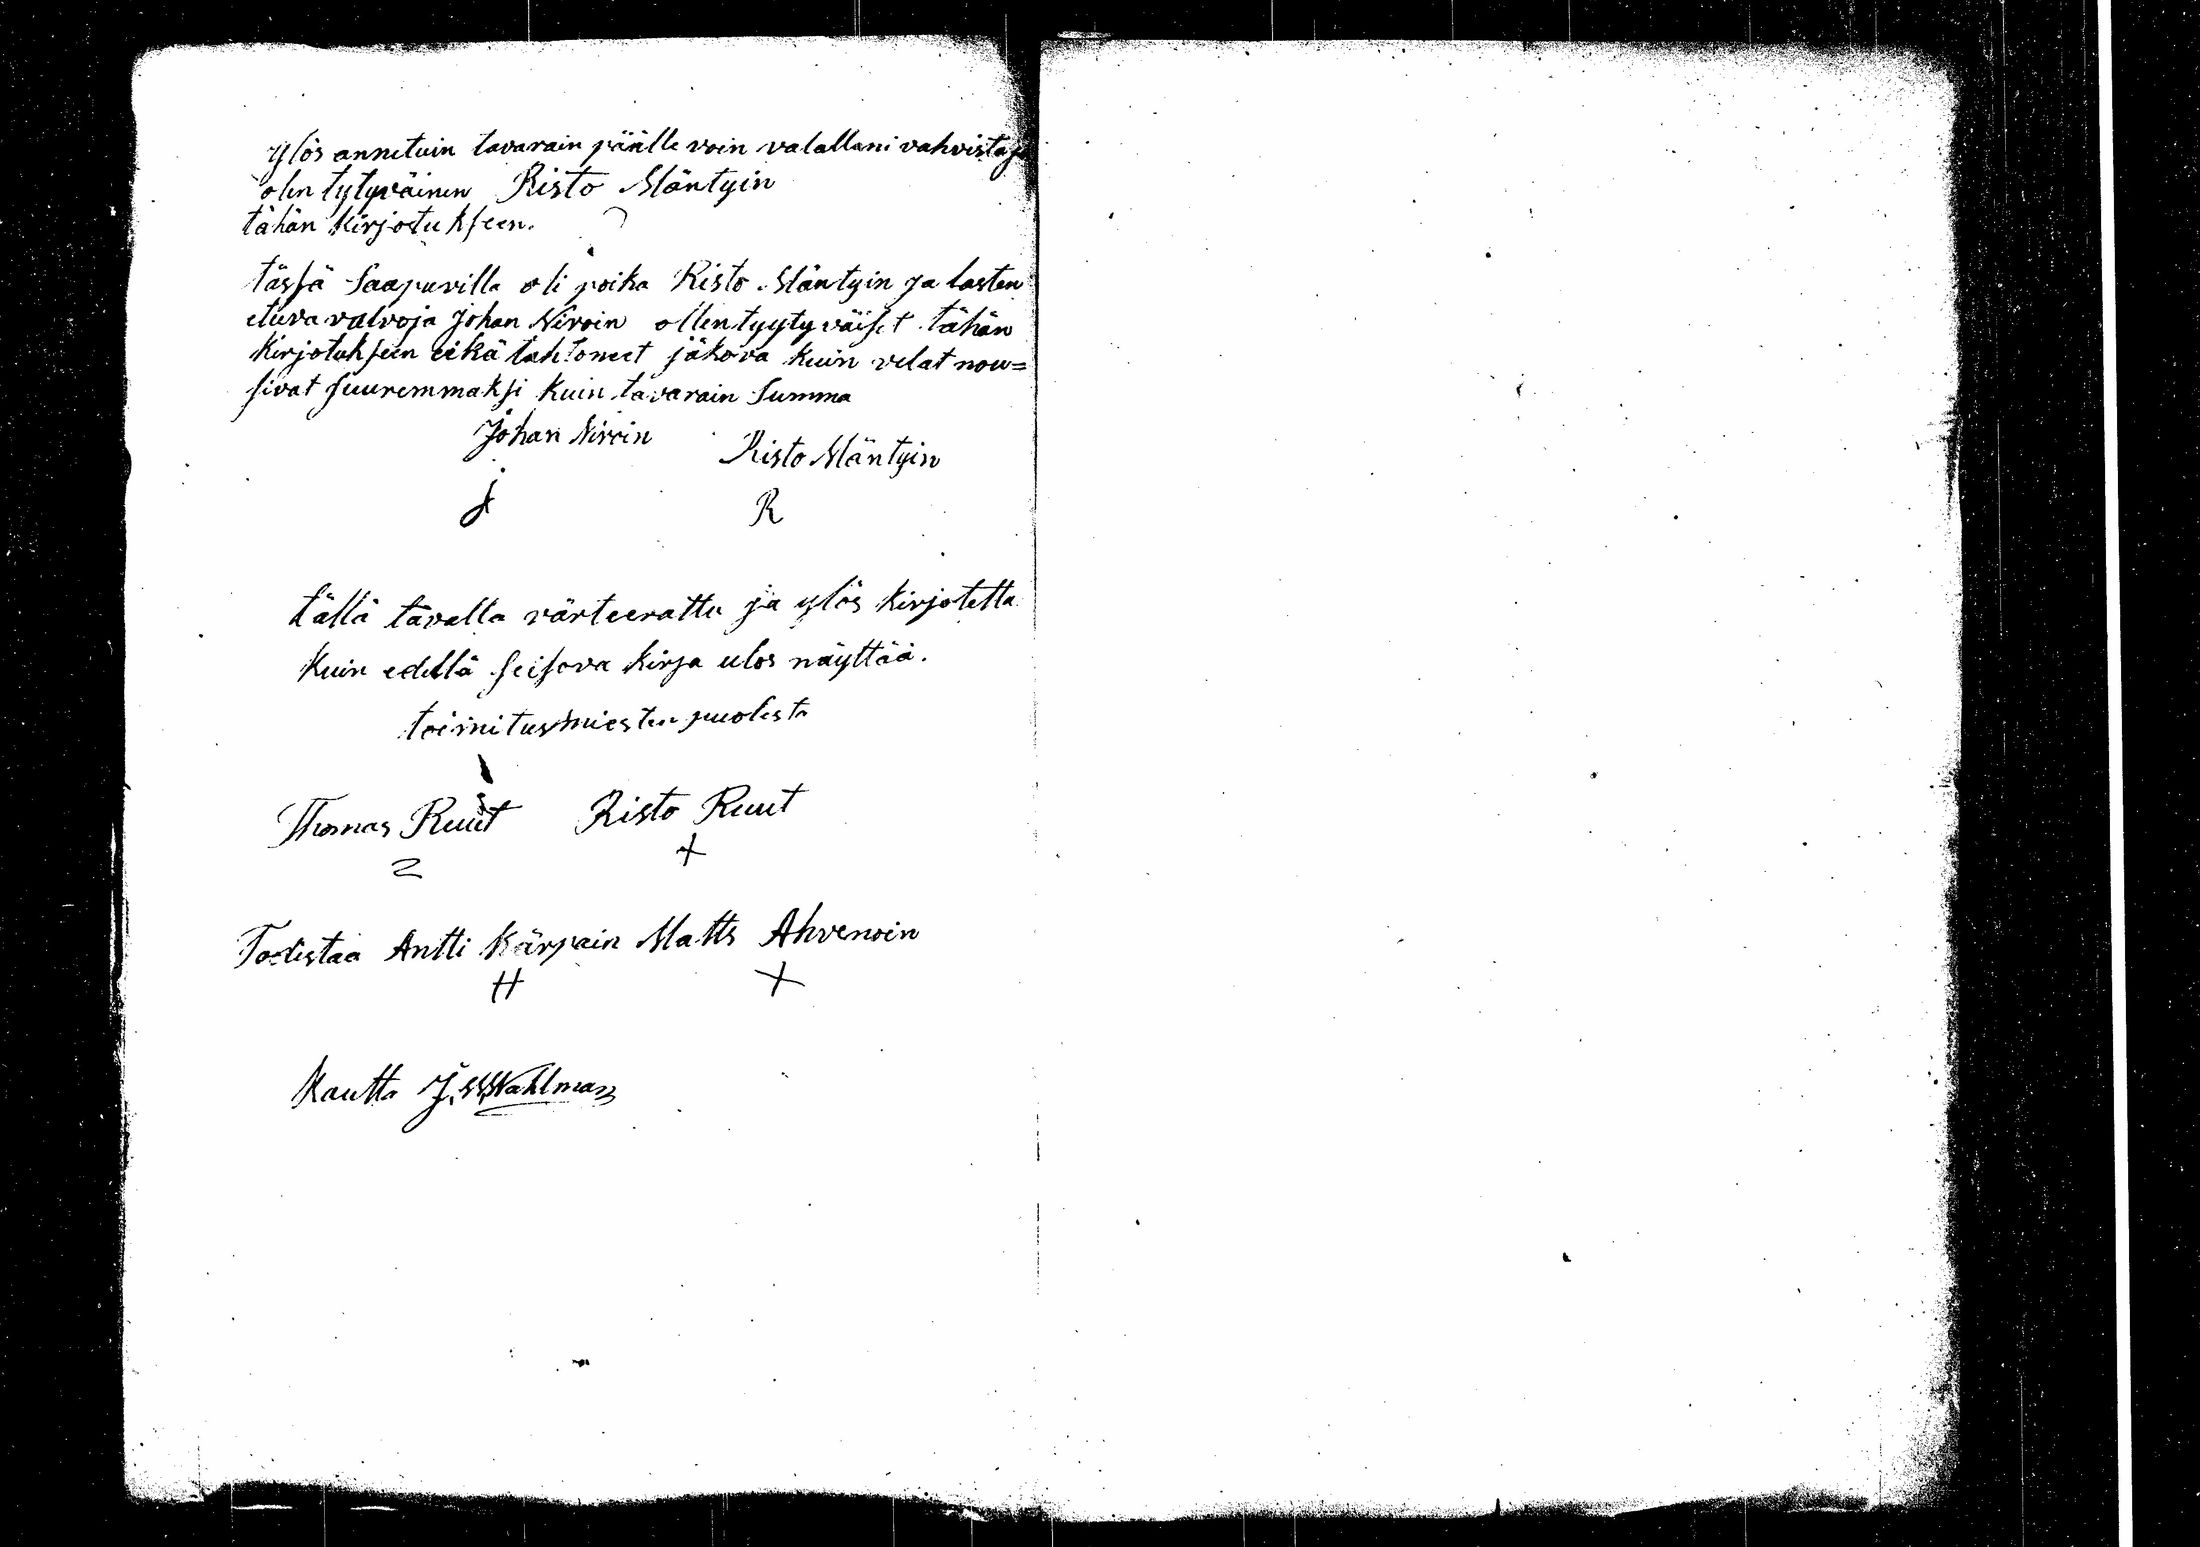 Ylös annetuin tavarain päälle voin valallani vahvista ja
olen tytyväinen Risto Mäntyin
tähän kirjotukseen.
tässä saapuvilla oli poika Risto Mäntyin ja lasten
etuva valvoja Johan Nivoin ollen tyytyväiset tähän
kirjotukseen eikä tahtoneet jäkova kuin velat nou=
sivat suuremmaksi kuin tavarain Summa
Johan Nivoin Risto Mäntyin
J R
tällä tavalla värteerattu ja ylös kirjotettu
kuin edellä seisova kirja ulos näyttää.
toimitusmiesten puolesta
Thomas Ruut Risto Ruut
+
Todistaa Antti Kärpain Matts Ahvenoin
H X
Kautta J. W. Wahlman